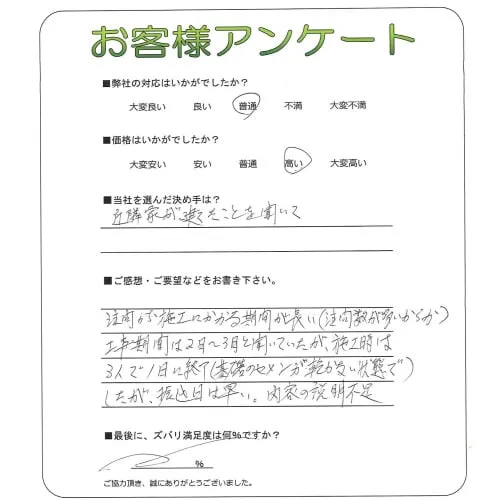 お客様アンケート
■弊社の対応はいかがでしたか?
大変良い 良い 普通 不満 大変不満
■価格はいかがでしたか?
大変安い 安い 普通 高い 大変高い
■当社を選んだ決め手は?
近隣家が
たことを聞いて
■ご感想・ご要望などをお書き下さい。
注文から施工にかかる期間が長い(注文数が多いからか)
工事期間は2日~3日と聞いていたが、施工時は
3人で1日に終了(基礎のセメンが乾かない状態で)
したが、振込日は早い。内容の説明不足
■最後に、ズバリ満足度は何%ですか?
%
ご協力頂き、誠にありがとうございました。